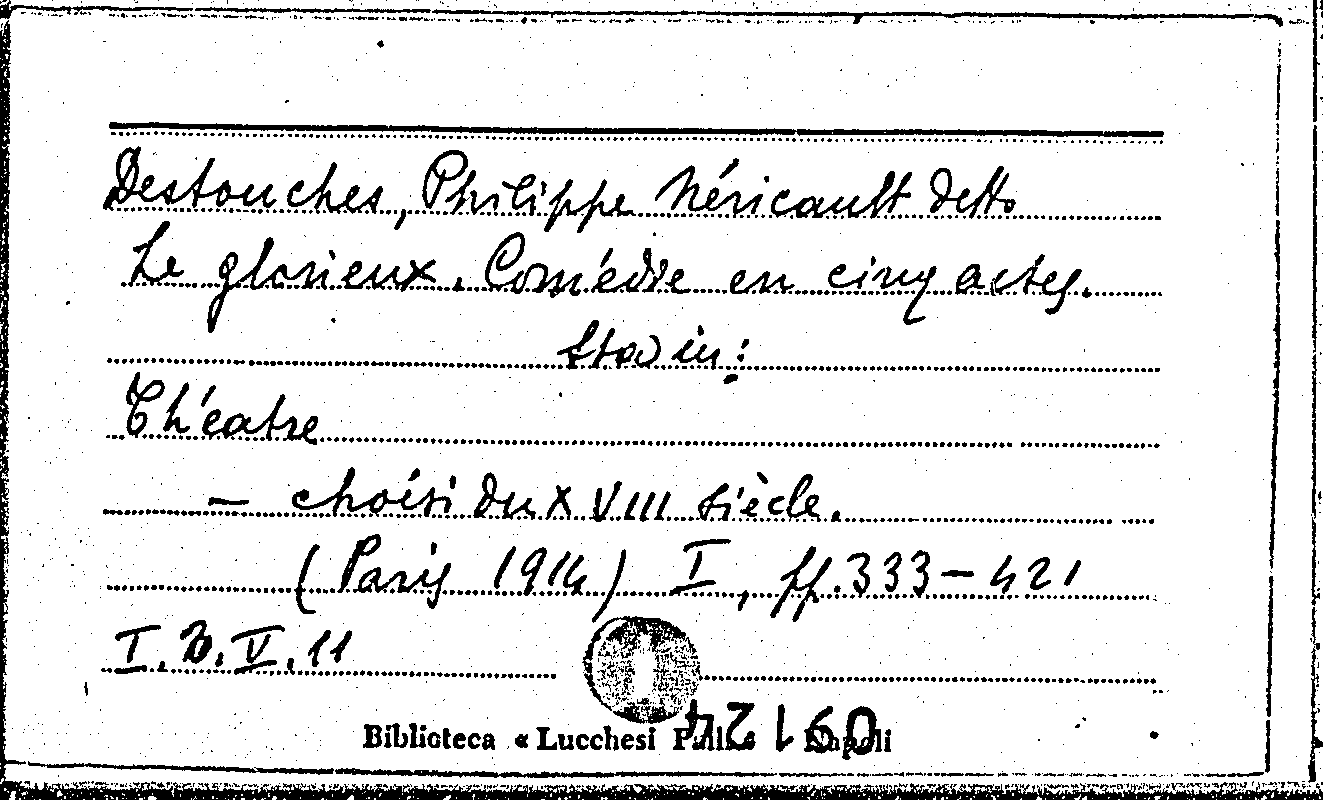 Destouches, Philippe Néricault detto
Le glorieux. Comédie en cinq actes.
Sta in:
Théatre
— choisi du XVIII siècle.
(Paris 1914) I, ff. 333-421
I.B.V.11
Biblioteca « Lucchesi Palli » Napoli